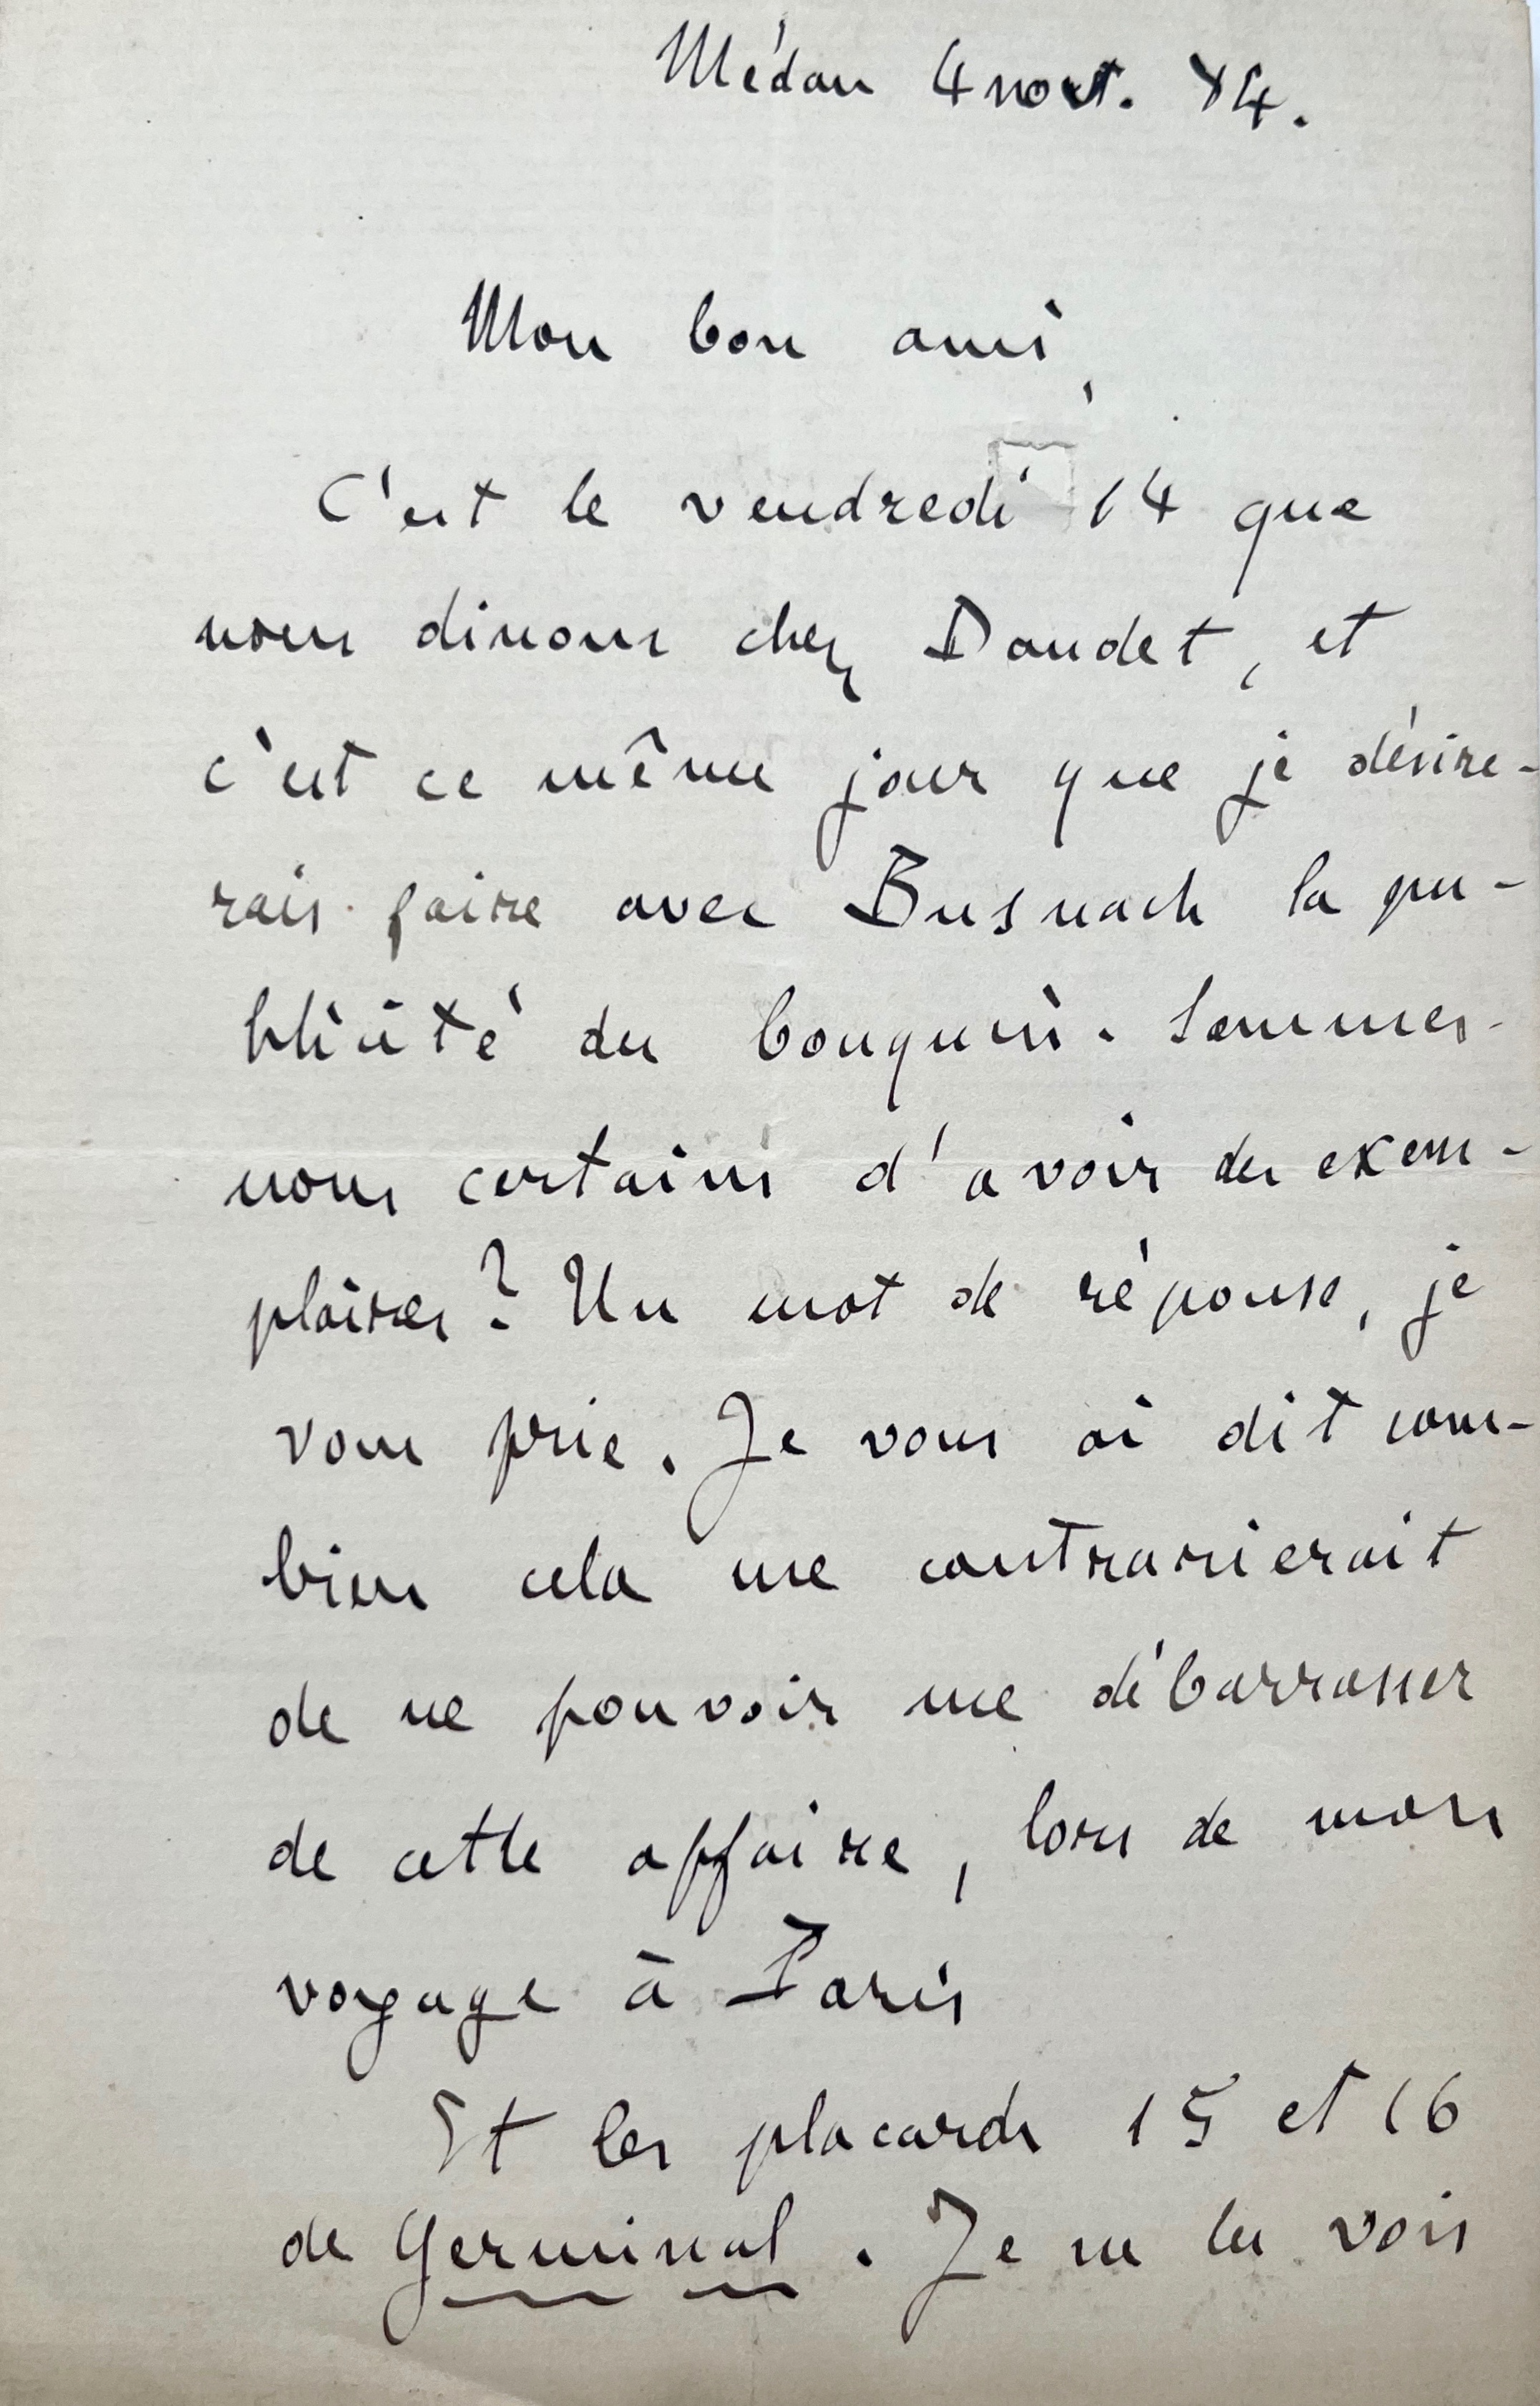 Médan 4 nov. 84.
Mon bon ami,
C'est le vendredi 14 que
nous dinons chez Daudet, et
c'est ce même jour que je désire-
rais faire avec Busnach la pu-
blicité du bouquin. Sommes-
nous certains d'avoir des exem-
plaires? Un mot de réponse, je
vous prie. Je vous ai dit com-
bien cela me contrarierait
de ne pouvoir me débarrasser
de cette affaire, lors de mon
voyage à Paris
Et les placards 15 et 16
de Germinal. Je ne les vois